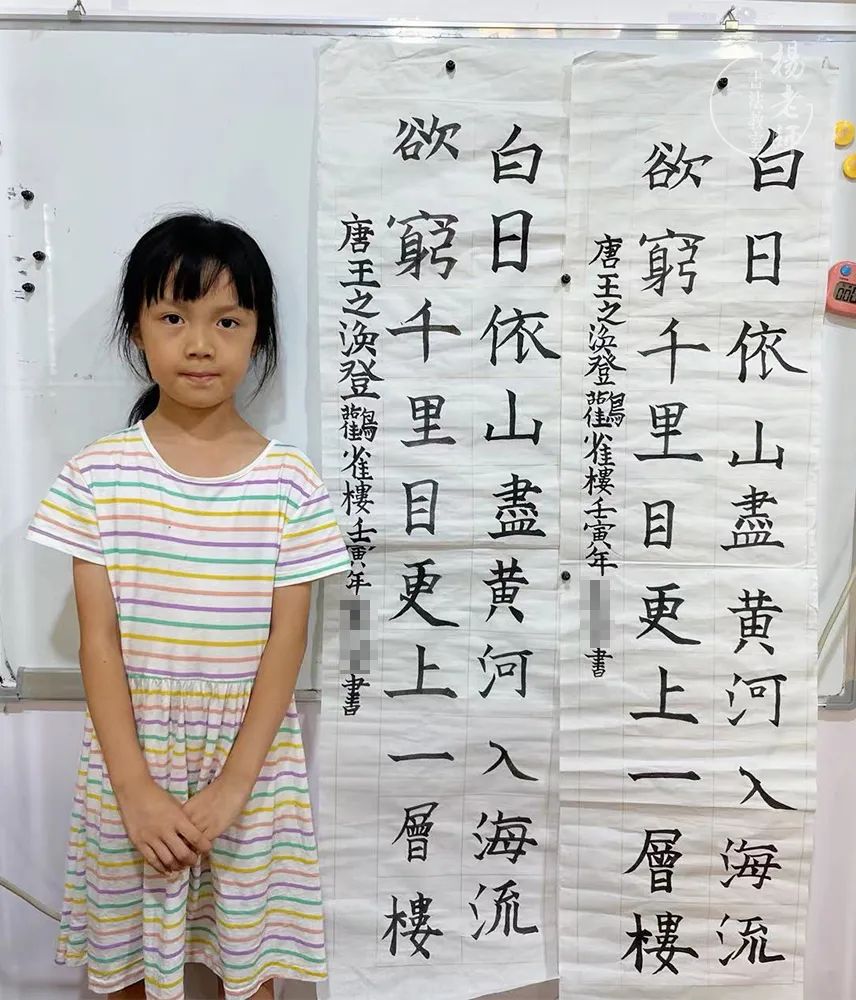 楊老師
白日依山盡黄河入海流
欲窮千里目更上一層樓
唐王之渙登鸛雀樓壬寅年
書
白日依山盡黄河入海流
欲窮千里目更上一層樓
唐王之渙登鸛雀樓壬寅年
書